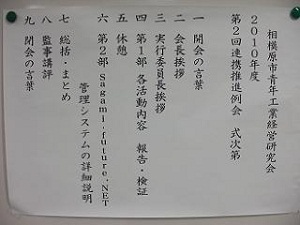 相模原市青年工業経営研究会
2010年度
第2回連携推進例会 式次第
一 開会の言葉
二 会長挨拶
三 実行委員長挨拶
四 第1部 各活動内容 報告・検証
五 休憩
六 第2部 Sagami-future.NET
管理システムの詳細説明
七 総括・まとめ
八 監事講評
九 閉会の言葉